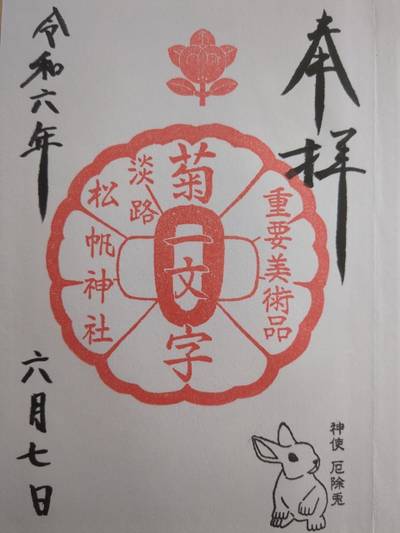 奉拝
重要美術品
菊一文字
淡路
松帆神社
令和六年
六月七日
神使 厄除兎